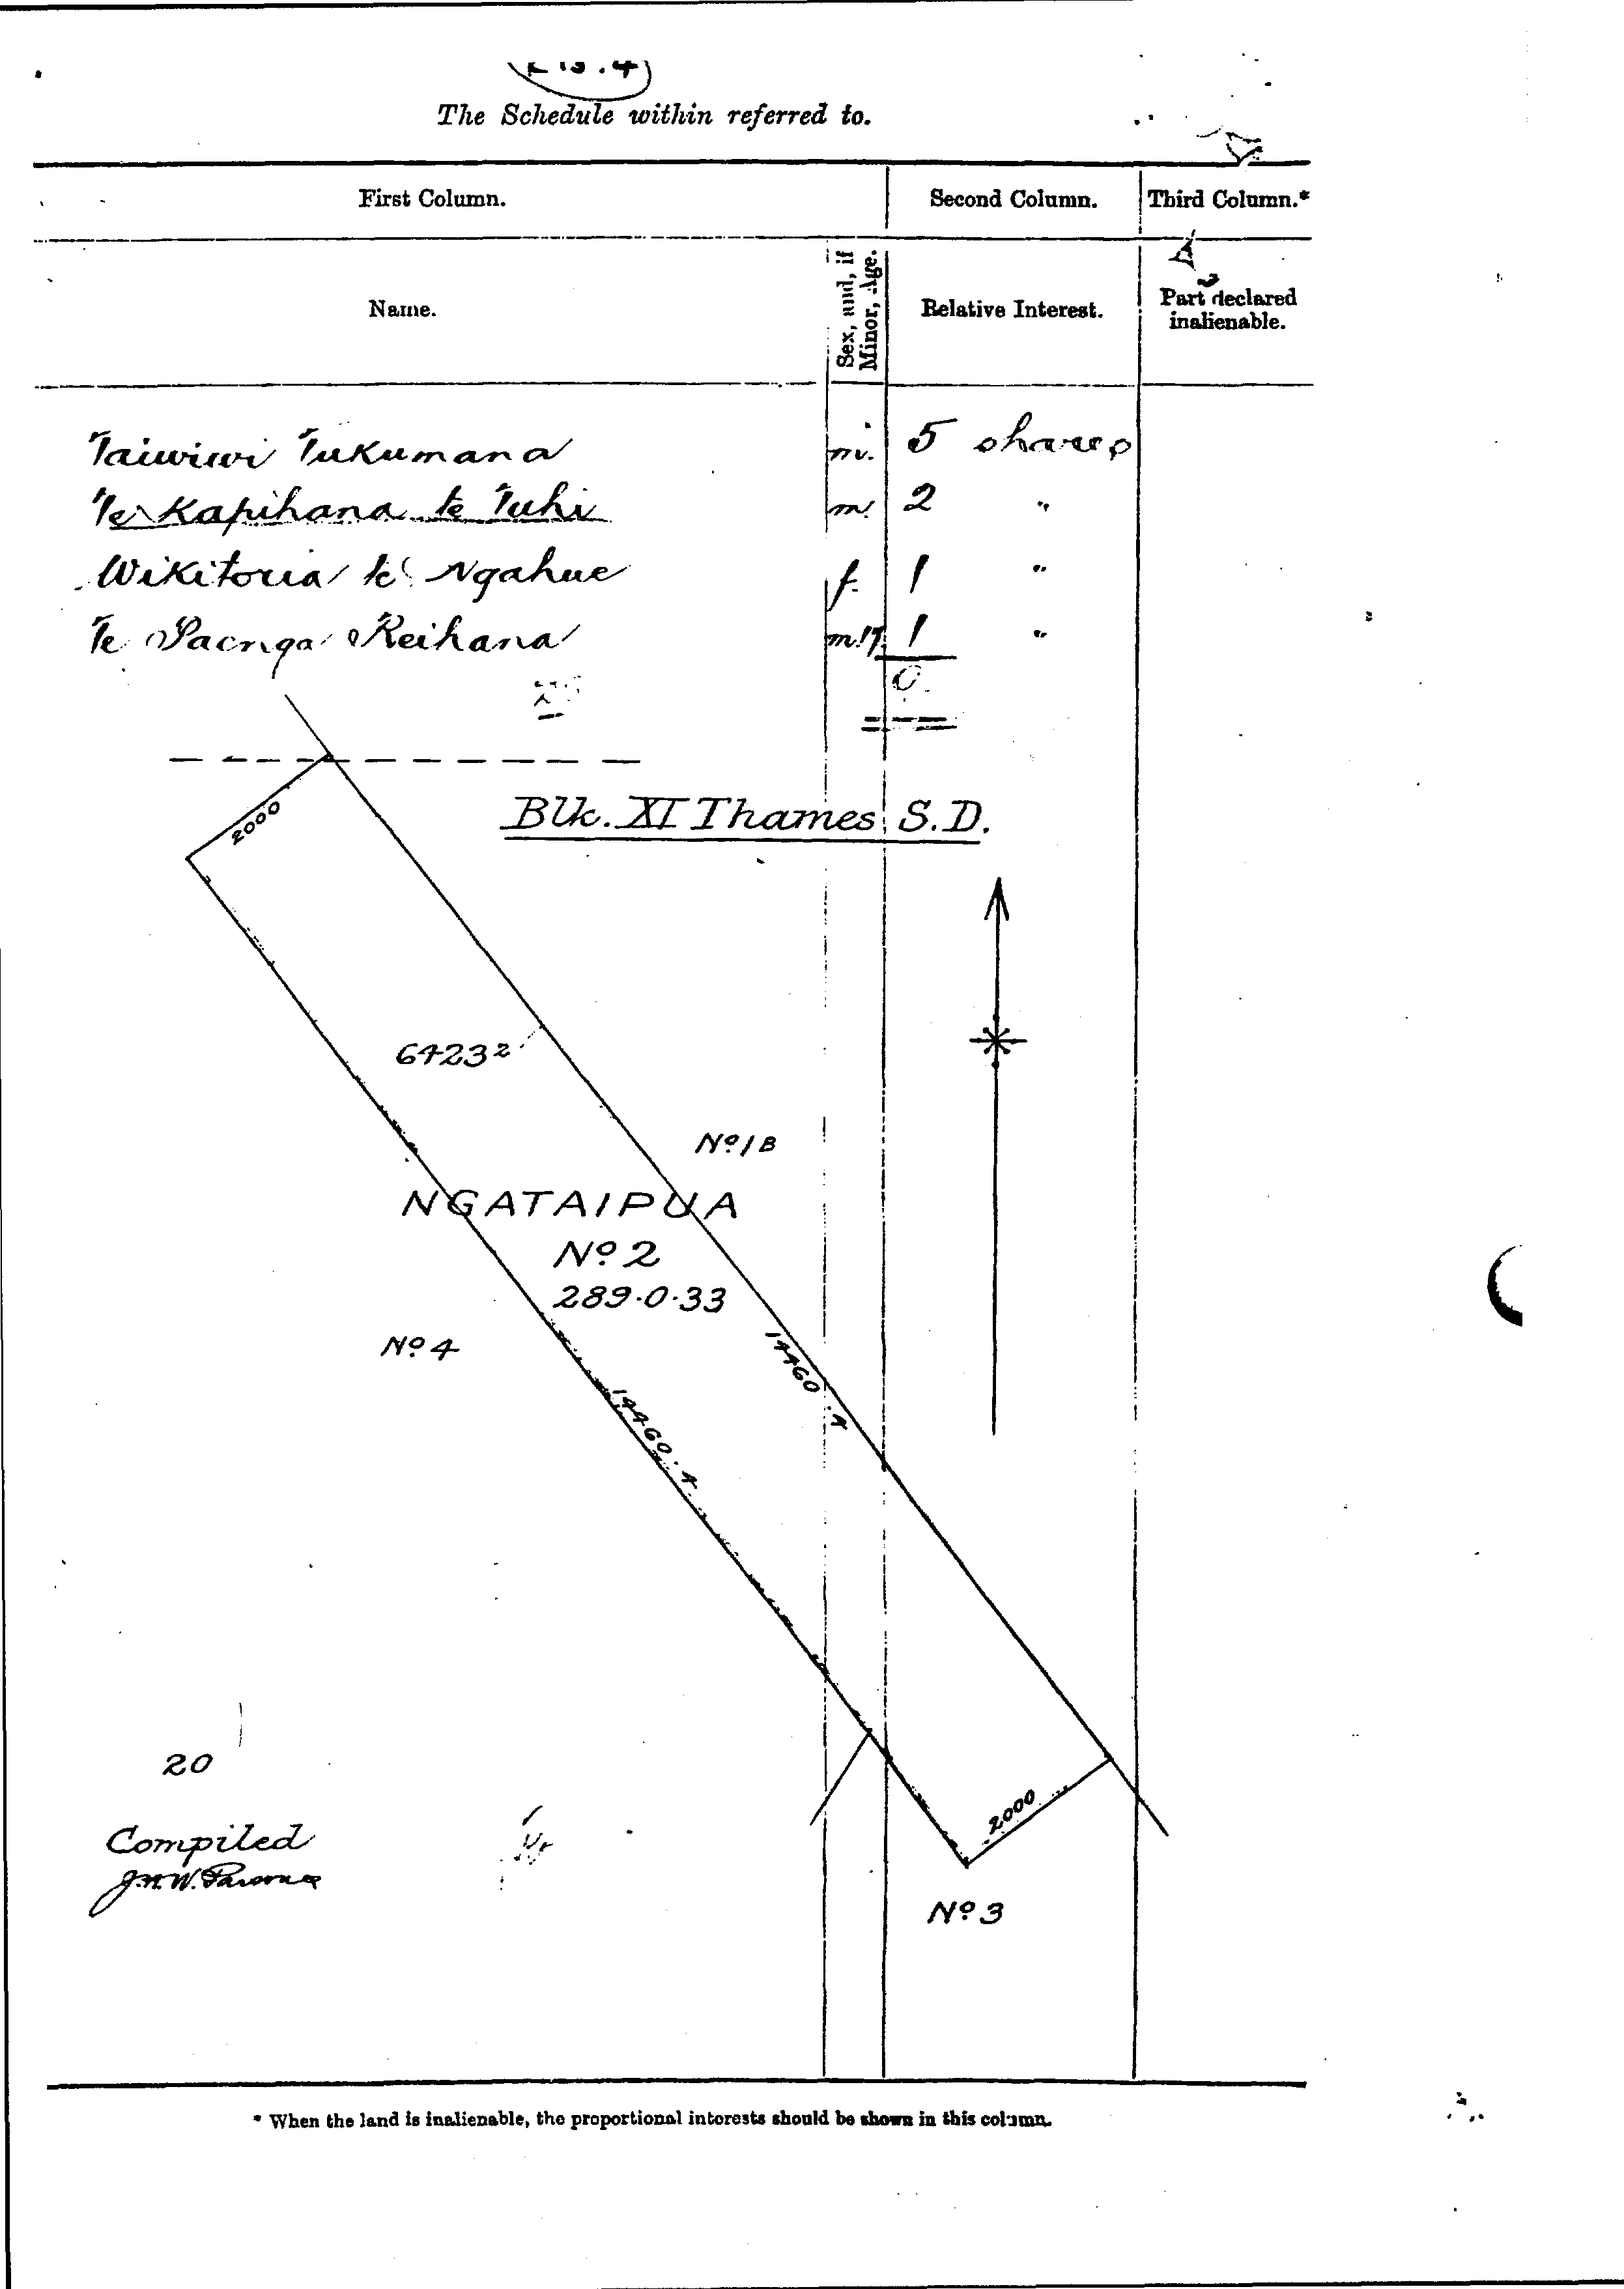 The Schedule within referred to.
First Column. Second Column. Third Column.*
Name. Sex, and, if Minor, Age. Relative Interest. Part declared inalienable.
Taiwiwi Tukumana m. 5 shares
Te Kapihana te Tuhi m. 2 "
Wikitoria te Ngahue f. 1 "
Te Paenga Reihana m. 17. 1 "
Blk. XI Thames S.D.
2000
No 1B
NGATAIPUA
No 2
289.0.33
No 4
14460.4
14460.4
20
2000
Compiled
No 3
* When the land is inalienable, the proportional interests should be shown in this column.